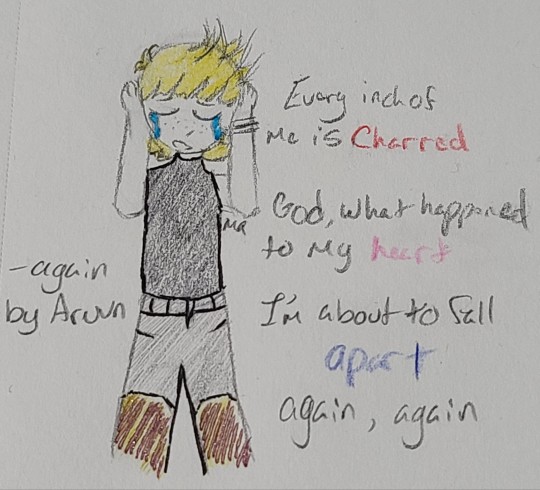 Every inch of
me is Charred
God, what happened
to my heart
I'm about to fall
apart
again, again
-again
by Aruvn
Ma